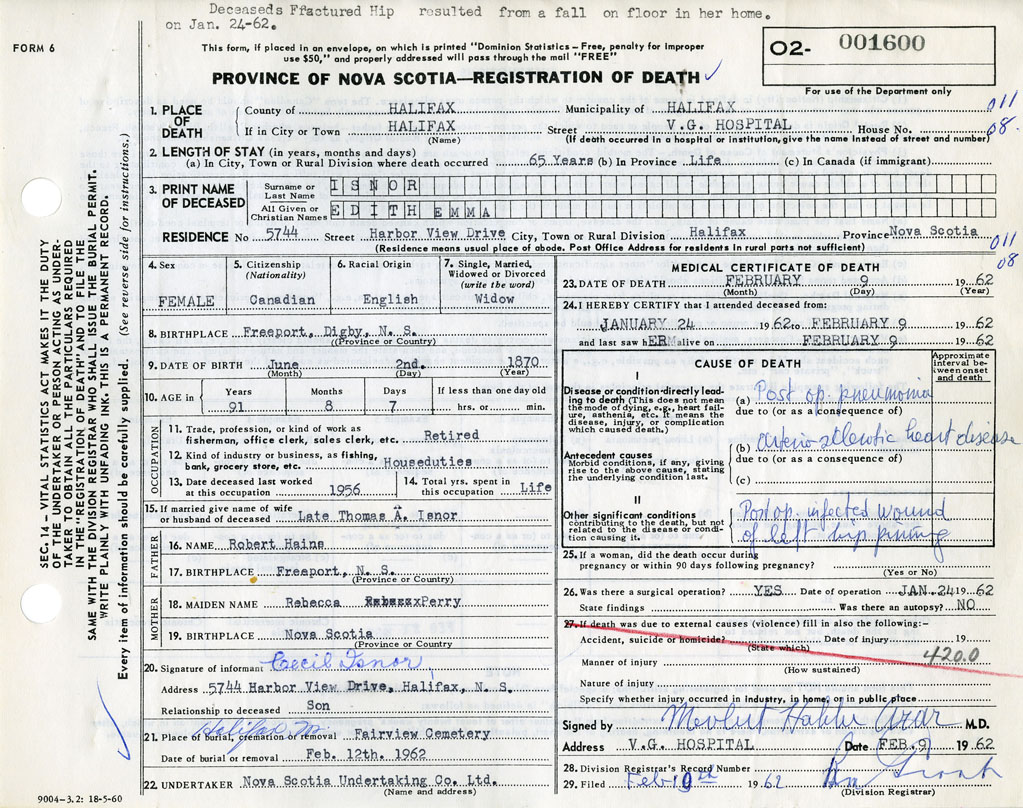 Deceaseds Ffactured Hip resulted from a fall on floor in her home.
on Jan. 24-62.
FORM 6
This form, if placed in an envelope, on which is printed "Dominion Statistics – Free, penalty for improper
use $50," and properly addressed will pass through the mail "FREE"
O2- 001600
For use of the Department only
PROVINCE OF NOVA SCOTIA—REGISTRATION OF DEATH ✓
1. PLACE OF DEATH
County of HALIFAX Municipality of HALIFAX
011
If in City or Town HALIFAX Street V.G. HOSPITAL House No.
08.
(Name) (If death occurred in a hospital or institution, give the name instead of street and number)
2. LENGTH OF STAY (in years, months and days)
(a) In City, Town or Rural Division where death occurred 65 Years (b) In Province Life (c) In Canada (if immigrant)
3. PRINT NAME OF DECEASED
Surname or Last Name ISNOR
All Given or Christian Names EDITH EMMA
RESIDENCE No 5744 Street Harbor View Drive City, Town or Rural Division Halifax Province Nova Scotia
(Residence means usual place of abode. Post Office Address for residents in rural parts not sufficient)
011
08
4. Sex
FEMALE
5. Citizenship
(Nationality)
Canadian
6. Racial Origin
English
7. Single, Married,
Widowed or Divorced
(write the word)
Widow
8. BIRTHPLACE Freeport, Digby, N. S.
(Province or Country)
9. DATE OF BIRTH June 2nd. 1870
(Month) (Day) (Year)
10. AGE in
Years Months Days If less than one day old
91 8 7 hrs. or min.
OCCUPATION
11. Trade, profession, or kind of work as
fisherman, office clerk, sales clerk, etc. Retired
12. Kind of industry or business, as fishing,
bank, grocery store, etc. Houseduties
13. Date deceased last worked
at this occupation 1956
14. Total yrs. spent in
this occupation Life
15. If married give name of wife
or husband of deceased Late Thomas A. Isnor
FATHER
16. NAME Robert Hains
17. BIRTHPLACE Freeport, N. S.
(Province or Country)
MOTHER
18. MAIDEN NAME Rebecca Perry
19. BIRTHPLACE Nova Scotia
(Province or Country)
20. Signature of informant Cecil Isnor
Address 5744 Harbor View Drive, Halifax, N. S.
Relationship to deceased Son
Halifax
21. Place of burial, cremation or removal Fairview Cemetery
Date of burial or removal Feb. 12th. 1962
22. UNDERTAKER Nova Scotia Undertaking Co. Ltd.
(Name and address)
MEDICAL CERTIFICATE OF DEATH
23. DATE OF DEATH FEBRUARY 9 1962
(Month) (Day) (Year)
24. I HEREBY CERTIFY that I attended deceased from:
JANUARY 24 1962 to FEBRUARY 9 1962
and last saw hER alive on FEBRUARY 9 1962
CAUSE OF DEATH
Approximate
interval be-
tween onset
and death
I
Disease or condition directly lead-
ing to death (This does not mean
the mode of dying, e.g., heart fail-
ure, asthenia, etc. It means the
disease, injury, or complication
which caused death.)
(a) Post op. pneumonia
due to (or as a consequence of)
Antecedent causes
Morbid conditions, if any, giving
rise to the above cause, stating
the underlying condition last.
(b) heart disease
due to (or as a consequence of)
(c)
II
Other significant conditions
contributing to the death, but not
related to the disease or condi-
tion causing it.
Post op. infected wound
of left hip pinning
25. If a woman, did the death occur during
pregnancy or within 90 days following pregnancy?
(Yes or No)
26. Was there a surgical operation? YES Date of operation JAN. 24 1962
State findings Was there an autopsy? NO
27. If death was due to external causes (violence) fill in also the following:-
Accident, suicide or homicide? Date of injury 19
(State which)
420.0
Manner of injury
(How sustained)
Nature of injury
Specify whether injury occurred in industry, in home, or in public place
Signed by Mevlut Hakki Azar M.D.
Address V.G. HOSPITAL Date FEB. 9 1962
28. Division Registrar's Record Number
29. Filed Feb 19 62
(Division Registrar)
SEC. 14 – VITAL STATISTICS ACT MAKES IT THE DUTY
OF THE UNDERTAKER OR PERSON ACTING AS UNDER-
TAKER TO OBTAIN ALL THE PARTICULARS REQUIRED
IN THE "REGISTRATION OF DEATH" AND TO FILE THE
SAME WITH THE DIVISION REGISTRAR WHO SHALL ISSUE THE BURIAL PERMIT.
WRITE PLAINLY WITH UNFADING INK. THIS IS A PERMANENT RECORD.
Every item of information should be carefully supplied. (See reverse side for instructions.)
9004-3.2: 18-5-60